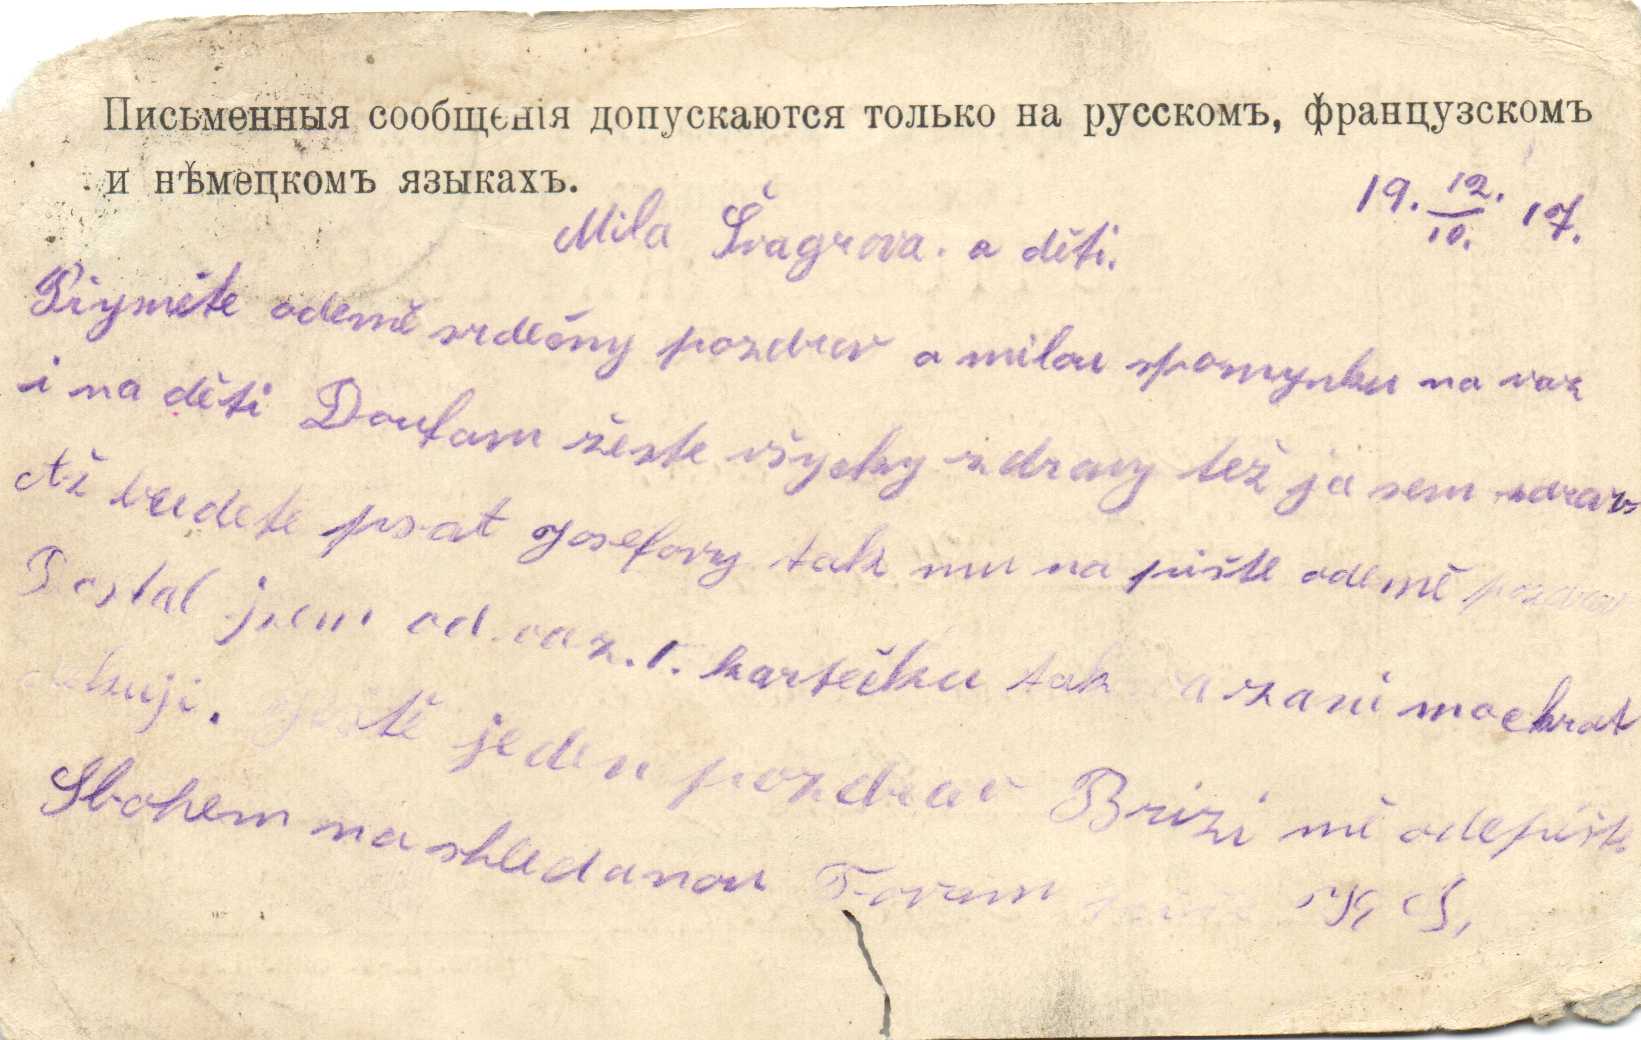 Письменныя сообщенія допускаются только на русскомъ, французскомъ
и нѣмецкомъ языкахъ.
19. 12./10. 17.
Mila Švagrova. a děti.
Přiyměte odemě srdečny pozdrav a milou spomynku na vas
i na děti Doufam žeste všycky zdravy též ja sem zdrav
Až budete psat Josefovy tak mu na pište odemě pozdrav
Dostal jsem od vas. 1. kartečku tak za ni mockrat
děkuji. Ještě jeden pozdrav Brizi mě odepište
Sbohem na shledanou